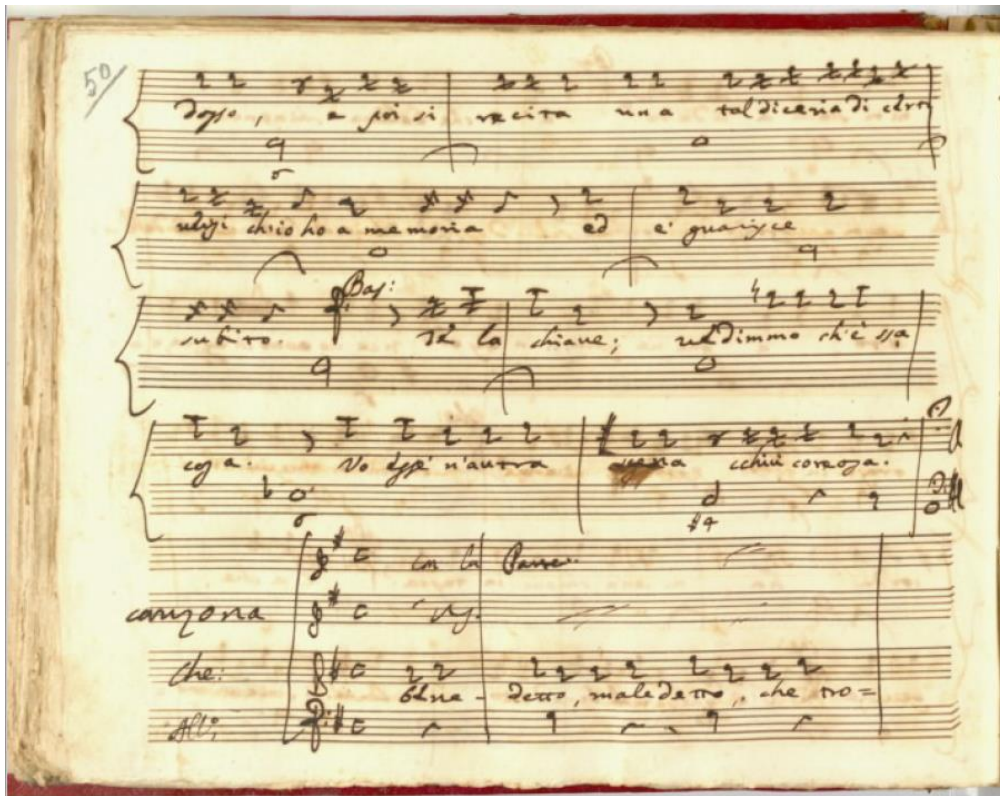 50
dosso, e poi si recita una tal diceria di certi
versi ch'io ho a memoria ed e' guarisce
6
Bas:
subito. Tè la chiave; vedimmo ch'è ssa
cosa. Vo esse n'autra cchiù corcosa.
6
#4
con la Parte
canzona Vns.
Che: bene - detto, maledetto, che tro=
All:o